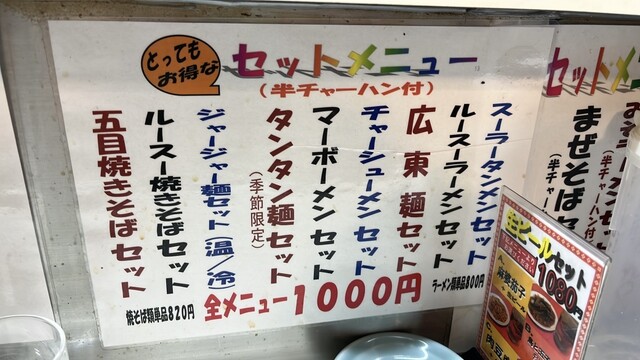 とってもお得な
セットメニュー
(半チャーハン付)
スーラータンメンセット
ルースーラーメンセット
広東麺セット
チャーシューメンセット
マーボーメンセット
タンタン麺セット
(季節限定)
ジャージャー麺セット(温/冷)
ルースー焼きそばセット
五目焼きそばセット
焼そば類単品820円
全メニュー1000円
ラーメン類単品800円
セットメニ
まぜそばセ
(半チャーハン付
生ビールセット
1080円
麻婆茄子